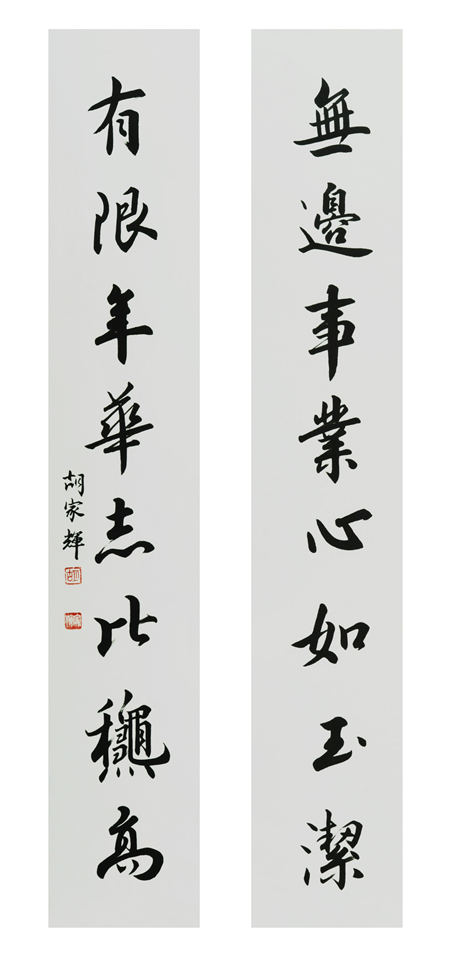 無邊事業心如玉潔
有限年華志比龝高
胡家輝